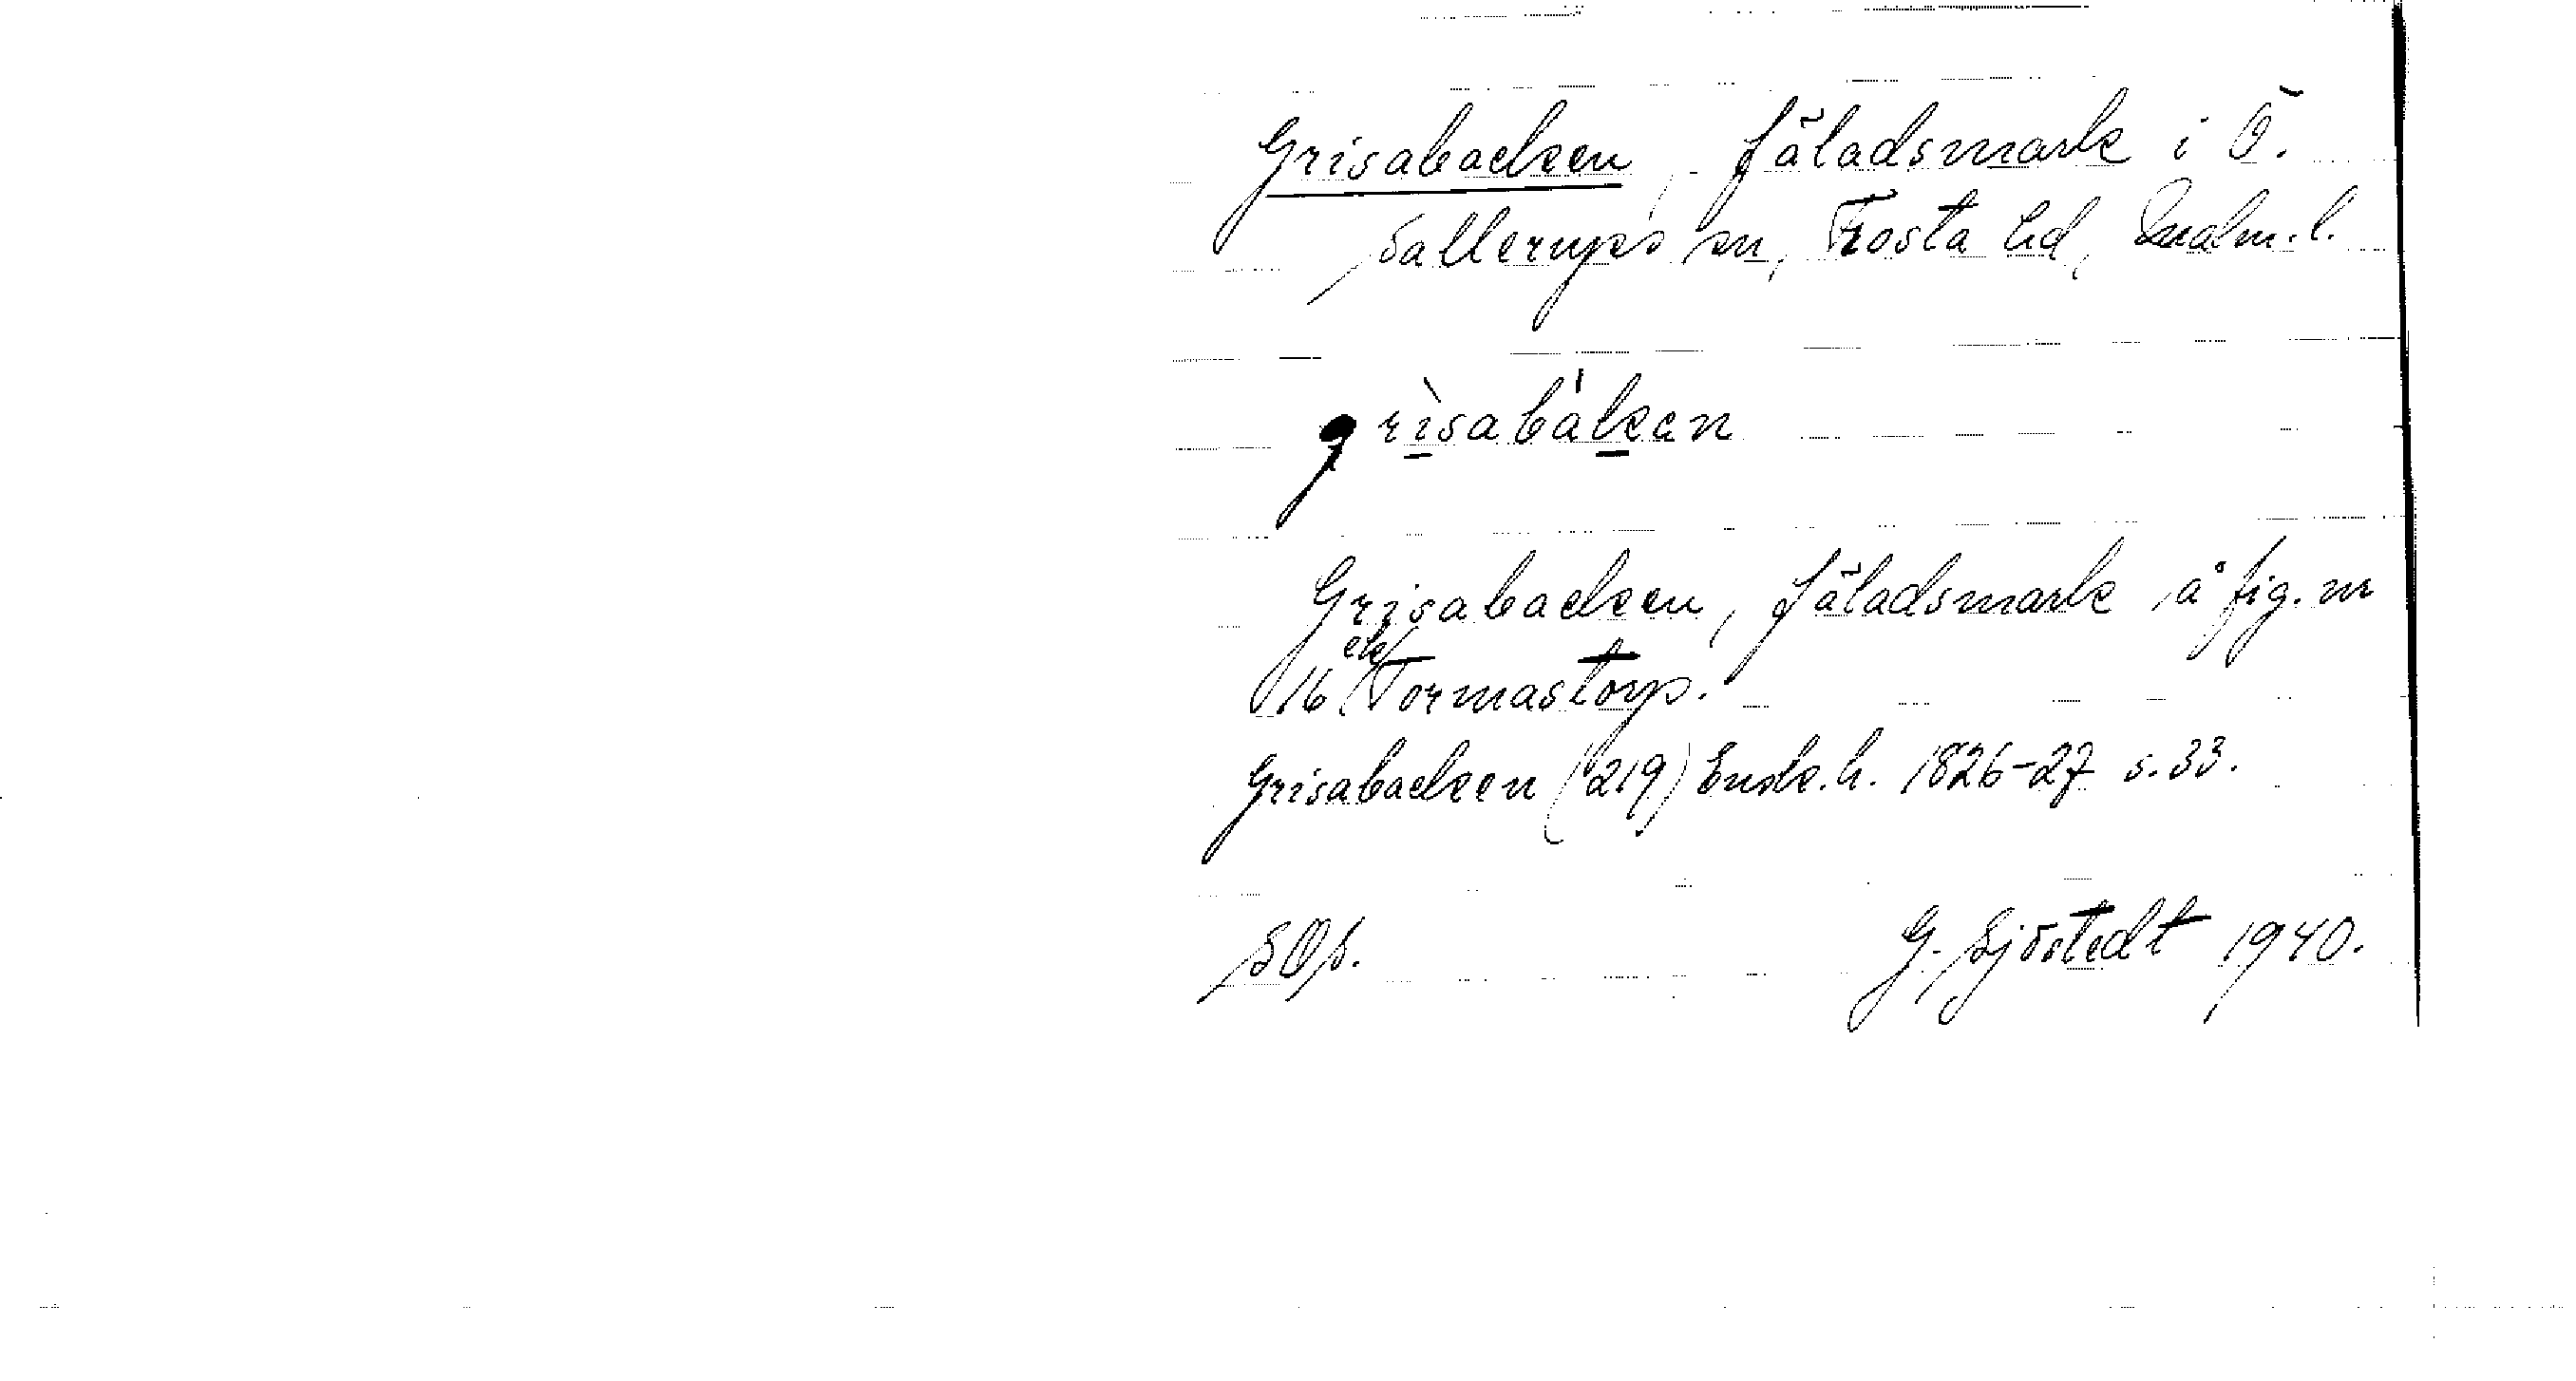 Grisabacken, fäladsmark i Ö.
Sallerups sn, Frosta hd, Malm.l.
grìsabákan
Grisabacken, fäladsmark å fig. nr
16 ek Tormastorp.
Grisabacken (219) Ensk.h. 1826-27 s.33.
SOS. G. Sjöstedt 1940.